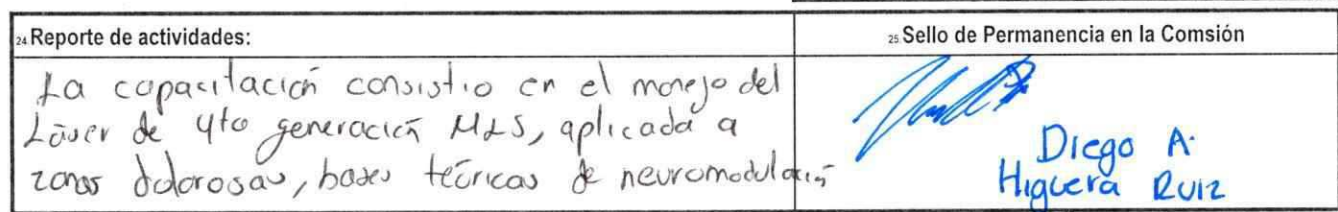 24 Reporte de actividades:
25 Sello de Permanencia en la Comsión
La capacitación consistio en el manejo del
Láser de 4to generación MLS, aplicada a
zonas dolorosas, bases teóricas de neuromodulación
Diego A.
Higuera Ruiz